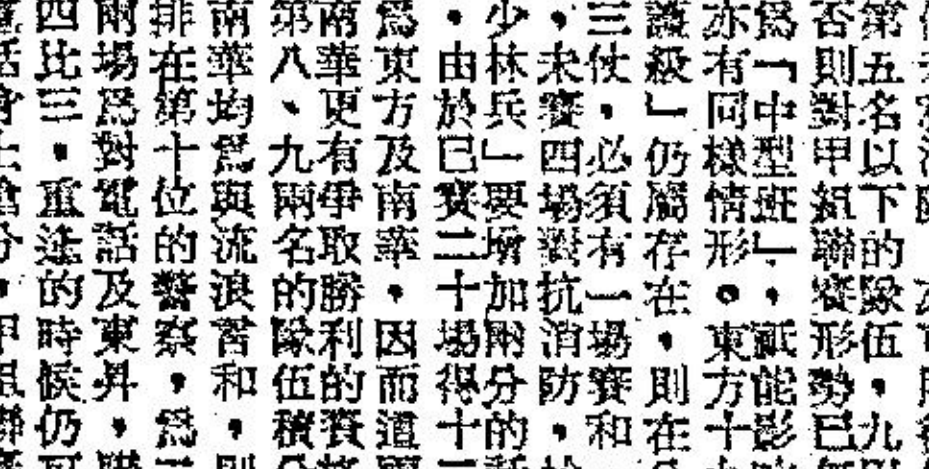 第五名以下的隊伍，九
否則對甲組聯賽形勢已
爲「中型班」，祇能影
亦有同樣情形。東方十
護級」仍屬存在，則在
三仗，必須有一場賽和
，未賽四場對抗消防，
少林兵」要增加兩分的
，由於已賽二十場得十
爲東方及南華。因而道
南華更有爭取勝利的資
第八、九兩名的隊伍積
南華均爲與流浪和，
排在第十位的警察，爲
兩場爲對電話及東昇，
四比三，重的時候仍